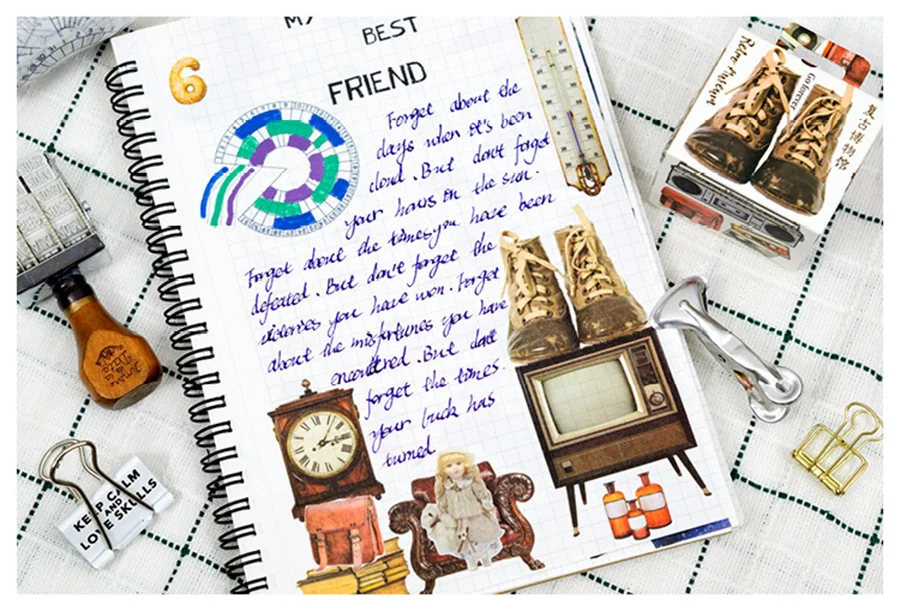 MY
BEST
FRIEND
6
Forget about the
days when it's been
cloud. But don't forget
your hours in the sun.
Forget about the times you have been
defeated. But don't forget the
victories you have won. Forget
about the misfortunes you have
encountred. But don't
forget the times.
your luck has
turned
Retro Museum
Go forever
复古博物馆
KEEP CALM
AND
LOVE SKULLS